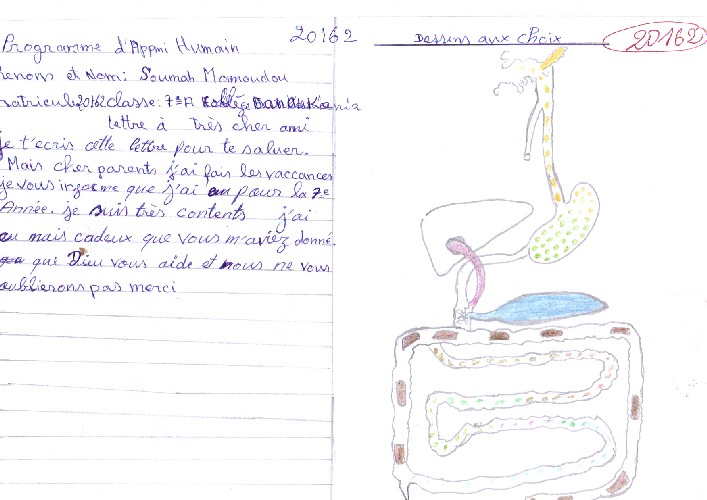 20162
Programme d'Appui Humain
renons et Nom: Soumah Momoudou
matricule 20162 classe: 7è A Collège
lettre à très cher ami
je t'ecris cette lettre pour te saluer.
Mais cher parents j'ai fais les vaccances
je vous informe que j'ai eu pour la 7e
Année. je suis très contents j'ai
eu mais cadeux que vous m'aviez donné.
que Dieu vous aide et nous ne vous
oublierons pas merci
Dessins aux choix
20162